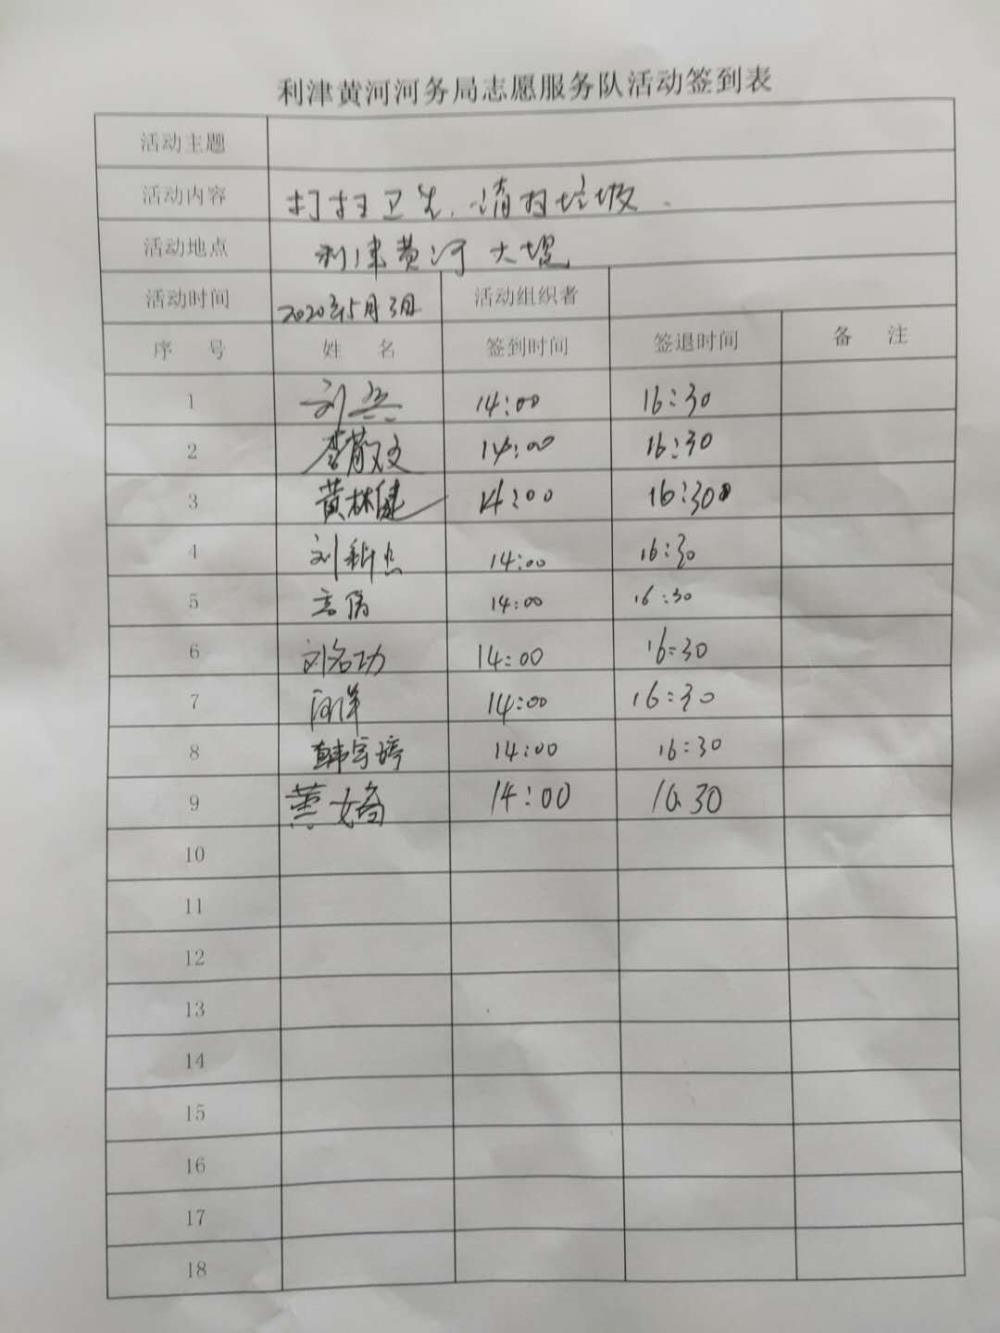 利津黄河河务局志愿服务队活动签到表
活动主题
活动内容 打扫卫生.清扫垃圾.
活动地点 利津黄河大堤
活动时间 2020年5月3日 活动组织者
序 号 姓 名 签到时间 签退时间 备 注
1 刘兵 14:00 16:30
2 李敬文 14:00 16:30
3 黄林健 14:00 16:30
4 刘 14:00 16:30
5 14:00 16:30
6 刘名功 14:00 16:30
7 14:00 16:30
8 韩宇婷 14:00 16:30
9 14:00 16 30
10
11
12
13
14
15
16
17
18